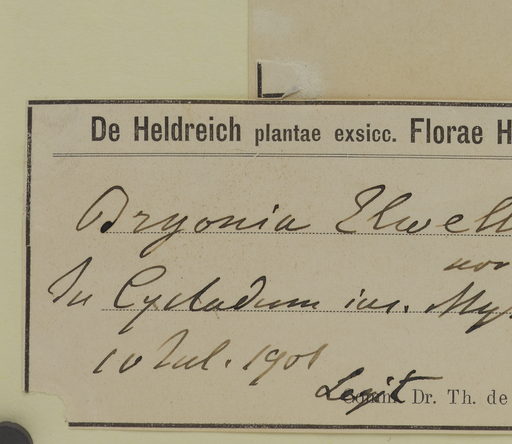 De Heldreich plantae exsicc. Florae H
Bryonia Elwell
nov
In Cycladum ins. My
10 Jul. 1901
Legit Dr. Th. de